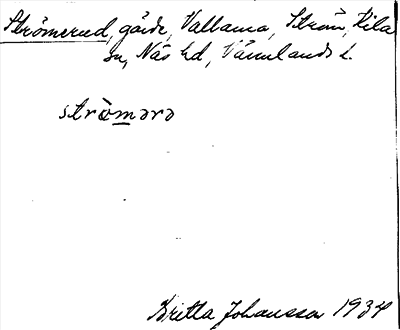 Strömerud, gårde, Vallarna, Ström, Kila
sn, Näs hd, Värmlands l.
strömərə
Britta Johansson 1934